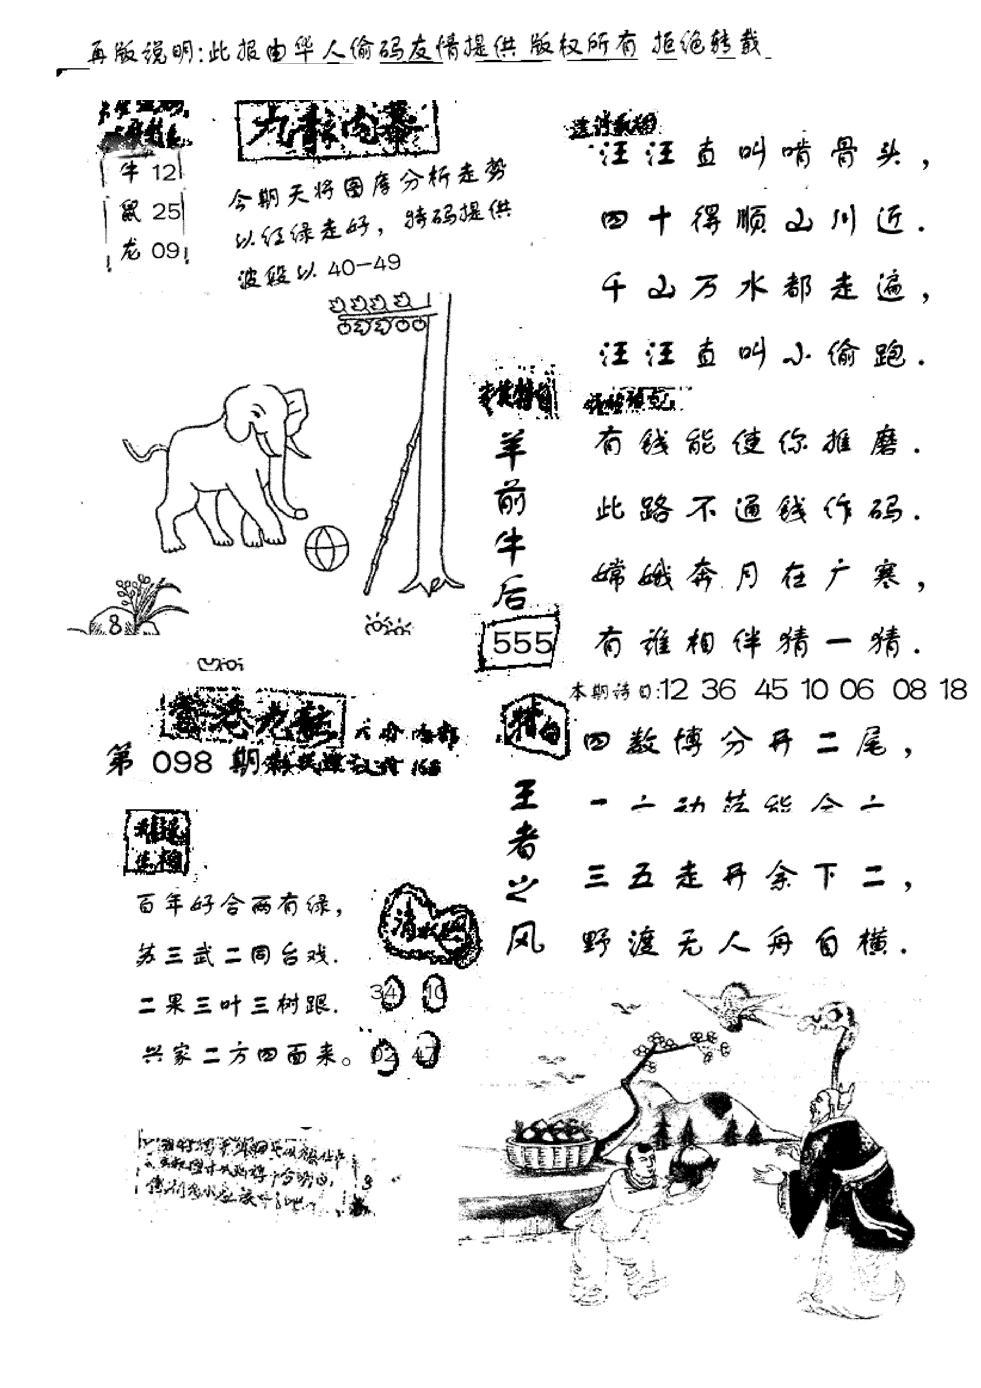 再版说明:此报由华人偷码友情提供 版权所有 拒绝转载
九龍内幕
牛 12
鼠 25
龙 09
今期天将图库分析走势
以红绿走好，特码提供
波段以 40-49
汪汪直叫啃骨头，
四十得顺山川近．
千山万水都走遍，
汪汪直叫小偷跑．
羊前牛后
555
有钱能使你推磨．
此路不通钱作码．
嫦娥奔月在广寒，
有谁相伴猜一猜．
本期诗曰:12 36 45 10 06 08 18
8
香港九龍
第 098 期
特白
王者之风
四数博分开二尾，
三五走开余下二，
野渡无人舟自横．
百年好合两有绿，
苏三武二同台戏．
二果三叶三树跟．
兴家二方四面来。
34 10
02 47